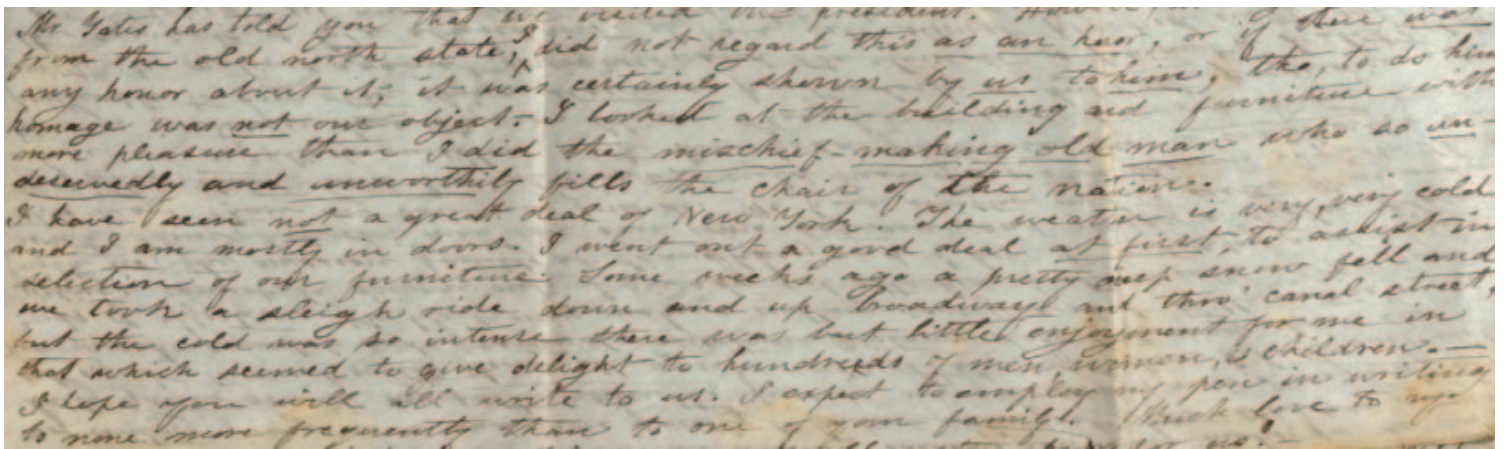 Mr Yates has told you that we visited the president. How
from the old north state, I did not regard this as an honor, or if there was
any honor about it, it was certainly shown by us to him, tho, to do him
homage was not our object. - I looked at the building and furniture with
more pleasure than I did the mischief-making old man who so un-
deservedly and unworthily fills the chair of the nation.
I have seen not a great deal of New York. The weather is very, very cold
and I am mostly in doors. I went out a good deal at first, to assist in
selection of our furniture Some weeks ago a pretty deep snow fell and
we took a sleigh ride down and up Broadway and thro' canal street,
but the cold was so intense there was but little enjoyment for me in
that which seemed to give delight to hundreds of men, women, & children. —
I hope you will all write to us. I expect to employ my pen in writing
to none more frequently than to one of your family. Much love to
us! -